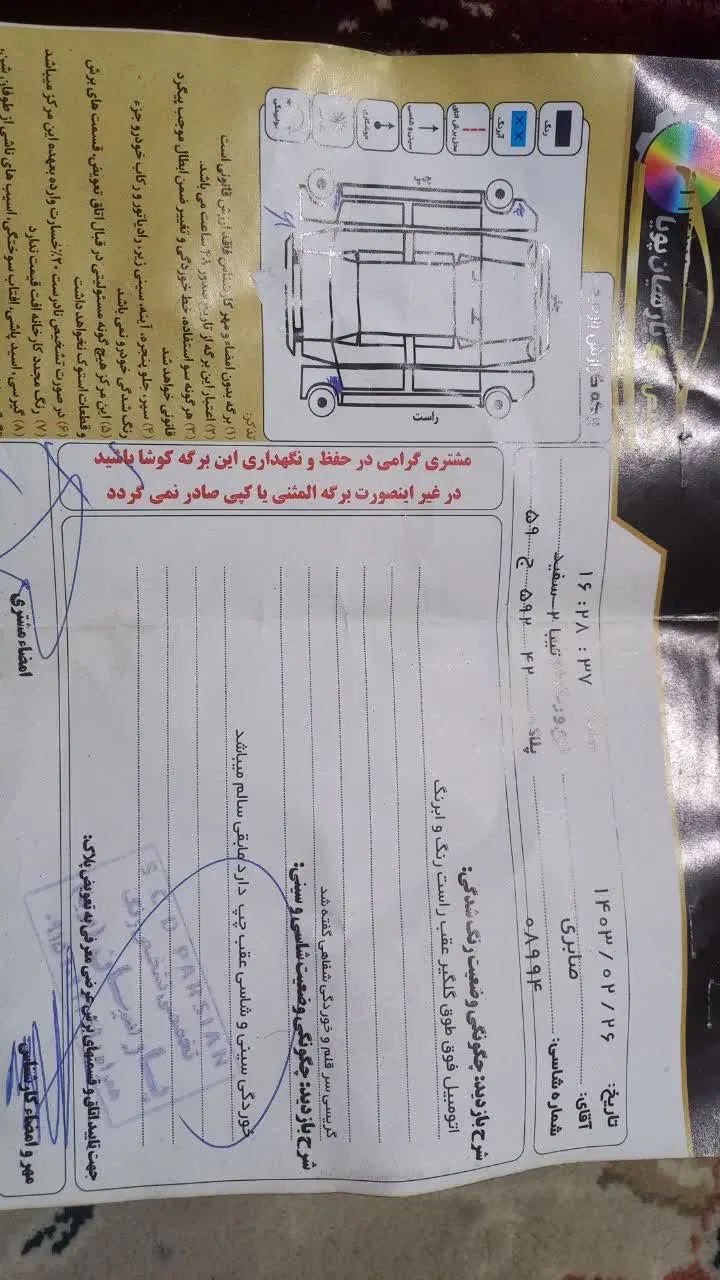 کارشناسان پویا
برگه گزارش بازدید
تاریخ: ۱۴۰۳/۰۲/۲۶
۱۶:۲۸:۳۷
آقای: صنابری
تیبا ۲-سفید
شماره شاسی: ۰۸۹۹۴
پلاک ۴۲ ۵۹۲ ج ۵۹
رنگ
آبرنگ
محل برش اتاق
سینی و شاسی
جوشکاری
پوسیدگی
راست
چپ
جلو
تذکر:
(۱) برگه بدون امضاء و مهر کارشناس فاقد ارزش قانونی است
(۲) اعتبار این برگه از تاریخ صدور ۴۸ ساعت می باشد.
(۳) هر گونه سو استفاده، خط خوردگی و تغییر ضمن ابطال موجب پیگرد
قانونی خواهد شد.
(۴) سپر، جلو پنجره، آینه، سینی زیر، رادیاتور و رکاب خودرو جزء
رنگ شدگی خودرو نمی باشد
(۵) این مرکز هیچ گونه مسئولیتی در قبال اتاق تعویض، قسمت های برش
و قطعات استوک نخواهد داشت
(۶) در صورت تشخیص نادرست ۲۰٪ خسارت وارده بعهده این مرکز میباشد
(۷) رنگ مجدد کارخانه افت قیمت ندارد
(۸) گیرسی، اسید پاشی، آفتاب سوختگی، آسیب های ناشی از طوفان شن،
مشتری گرامی در حفظ و نگهداری این برگه کوشا باشید
در غیر اینصورت برگه المثنی یا کپی صادر نمی گردد
شرح بازدید: چگونگی وضعیت رنگ شدگی:
اتومبیل فوق طوق گلگیر عقب راست رنگ و ابرنگ
گریسی سر قلم و خوردگی شفاهی گفته شد
شرح بازدید: چگونگی وضعیت شاسی و سینی:
خوردگی سینی و شاسی عقب چپ دارد مابقی سالم میباشد
جهت تایید اتاق و قسمتهای برش عرضی معرفی به تعویض پلاک:
PARSIAN
امضاء مشتری
مهر و امضاء کارشناس